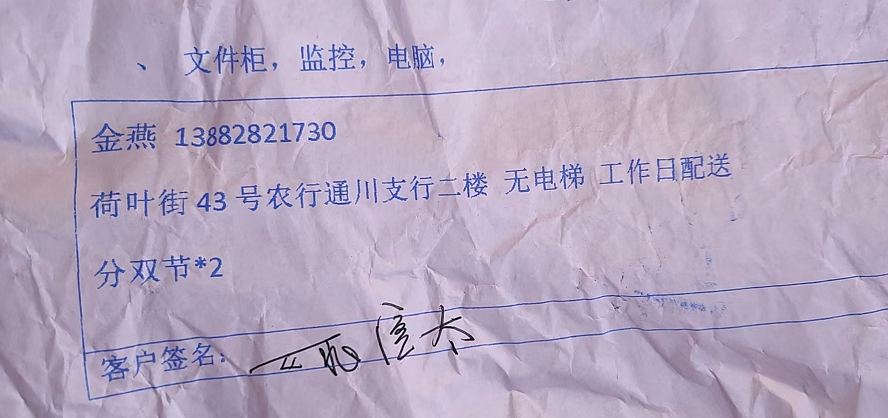 、 文件柜，监控，电脑，
金燕 13882821730
荷叶街 43 号农行通川支行二楼 无电梯 工作日配送
分双节*2
客户签名：